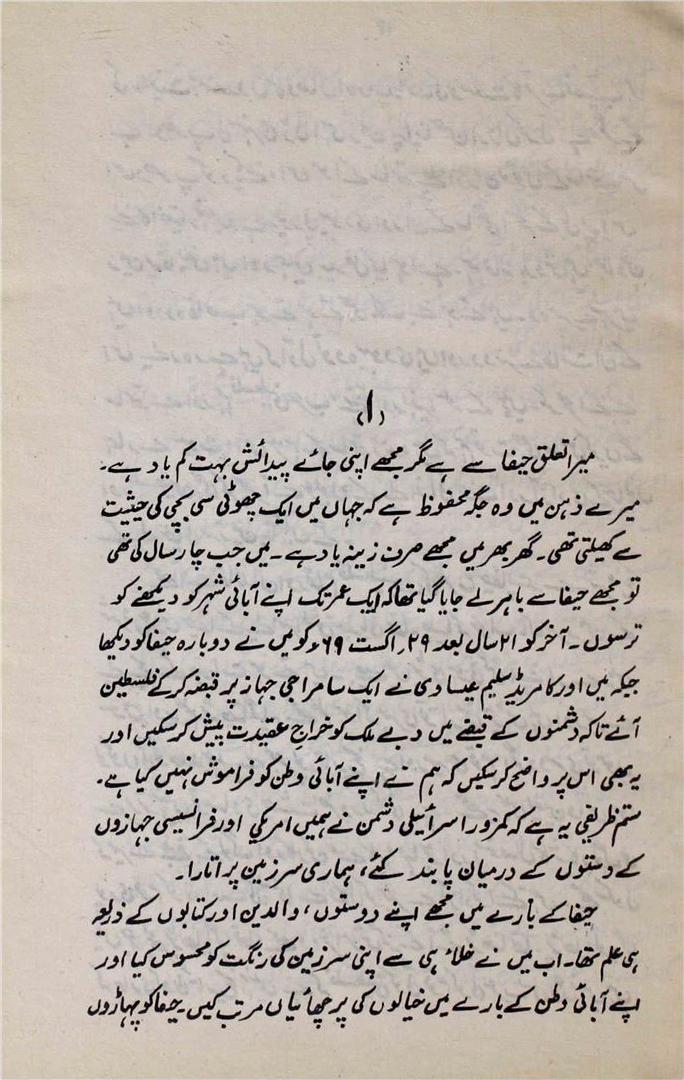 (۱)
میرا تعلق حیفا سے ہے مگر مجھے اپنی جائے پیدائش بہت کم یاد ہے۔
میرے ذہن میں وہ جگہ محفوظ ہے کہ جہاں میں ایک چھوٹی سی بچی کی حیثیت
سے کھیلتی تھی۔ گھر بھر میں مجھے صرف زینہ یاد ہے۔ میں جب چار سال کی تھی
تو مجھے حیفا سے باہر لے جایا گیا تھا کہ ایک عمر تک اپنے آبائی شہر کو دیکھنے کو
ترسوں۔ آخر کو ۲۱ سال بعد ۲۹؍ اگست ۶۹ء کو میں نے دوبارہ حیفا کو دیکھا
جبکہ میں اور کامریڈ سلیم عیساوی نے ایک سامراجی جہاز پر قبضہ کر کے فلسطین
آئے تاکہ دشمنوں کے قبضے میں دبے ملک کو خراجِ عقیدت پیش کر سکیں اور
یہ بھی اس پر واضح کر سکیں کہ ہم نے اپنے آبائی وطن کو فراموش نہیں کیا ہے۔
ستم ظریفی یہ ہے کہ کمزور اسرائیلی دشمن نے ہمیں امریکی اور فرانسیسی جہازوں
کے دستوں کے درمیان پابند کئے، ہماری سرزمین پر اتارا۔
حیفا کے بارے میں مجھے اپنے دوستوں، والدین اور کتابوں کے ذریعہ
ہی علم تھا۔ اب میں نے خلاء ہی سے اپنی سرزمین کی رنگت کو محسوس کیا اور
اپنے آبائی وطن کے بارے میں خیالوں کی پرچھائیاں مرتب کیں۔ حیفا کو پہاڑوں